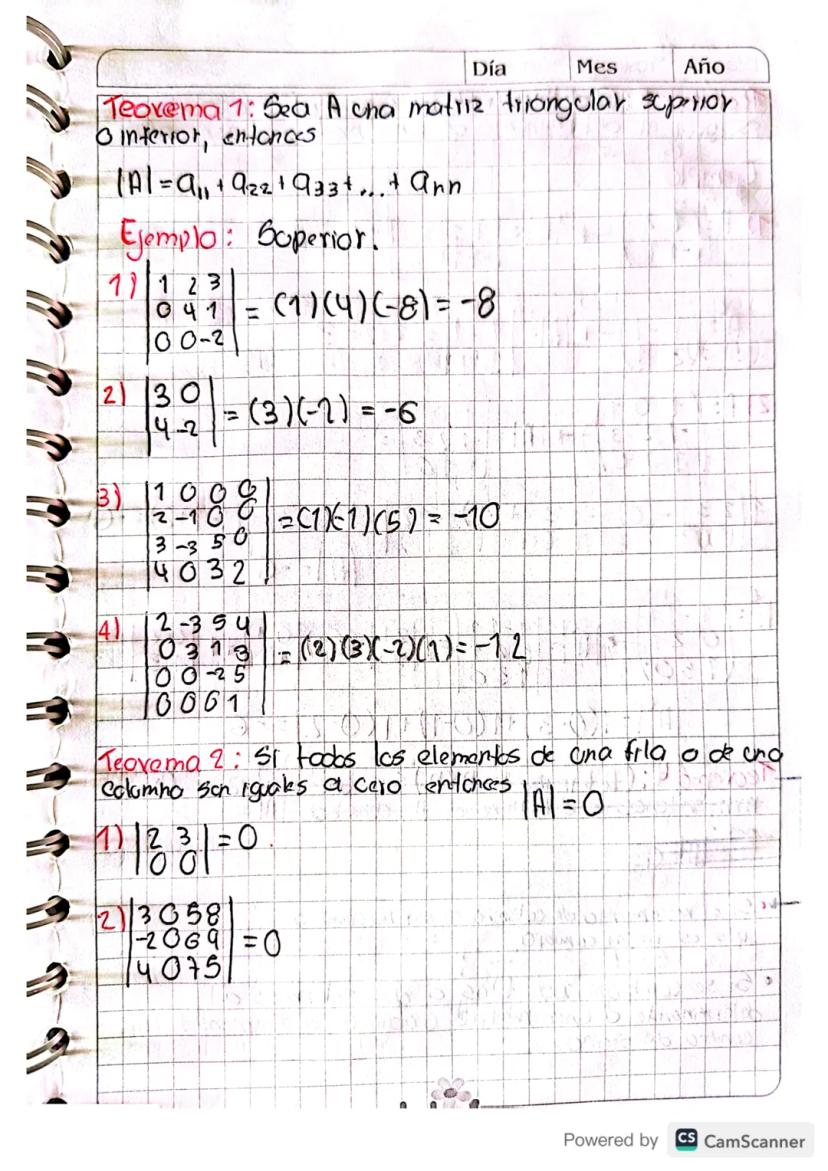 Día Mes Año
Teorema 1: Sea A una matriz triangular superior
o inferior, entonces
|A| = a₁₁ + a₂₂ + a₃₃ + ... + ann
Ejemplo: Superior.
1) |1 2 3|
|0 4 1| = (1)(4)(-8) = -8
|0 0 -2|
2) |3 0|
|4 -2| = (3)(-2) = -6
3) |1 0 0 0|
|2 -1 0 0| = (1)(-1)(5) = -10
|3 -3 5 0|
|4 0 3 2|
4) |2 -3 5 4|
|0 3 1 3| = (2)(3)(-2)(1) = -12
|0 0 -2 5|
|0 0 0 1|
Teorema 2: Si todos los elementos de una fila o de una
columna son iguales a cero entonces |A| = 0
1) |2 3| = 0.
|0 0|
2) |3 0 5 8|
|-2 0 6 9| = 0
|4 0 7 5|
Powered by CS CamScanner